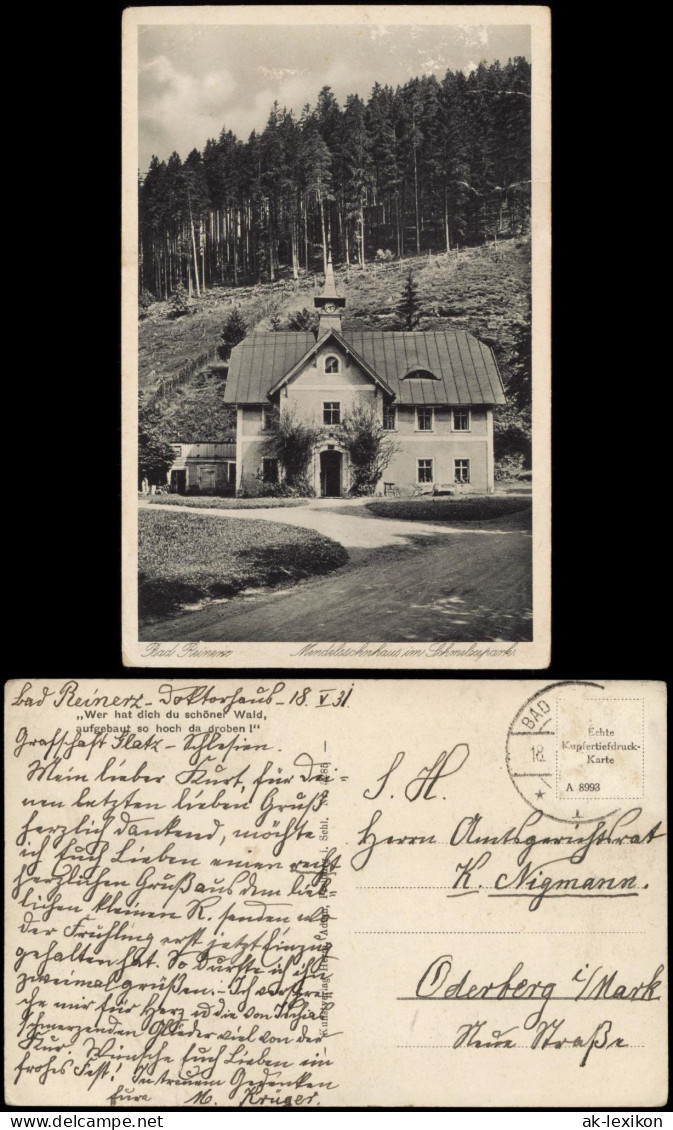 Bad Reinerz
Mendelssohnhaus im Schmelzepark
Bad Reinerz - Doktorhaus - 18. V 31
„Wer hat dich du schöner Wald,
aufgebaut so hoch da droben!"
Grafschaft Glatz - Schlesien.
Mein lieber Kurt, für Dei-
nen letzten lieben Gruß
herzlich dankend, möchte
ich Euch Lieben einen recht
herzlichen Gruß aus dem lieb-
lichen, kleinen R. senden wo
der Frühling erst jetzt Einzug
gehalten hat. So durfte ich ihn
zweimal grüßen. - Ich verspre-
che mir für Herz u die von Ischias
schmerzenden Glieder viel von der
Kur. Wünsche Euch Lieben ein
frohes Fest! In treuem Gedenken
Eure M. Krüger.
BAD
18.
Echte
Kupfertiefdruck-
Karte
A 8993
S. H.
Herrn Amtsgerichtsrat
K. Nigmann.
Oderberg i/Mark
Neue Straße
ak-lexikon